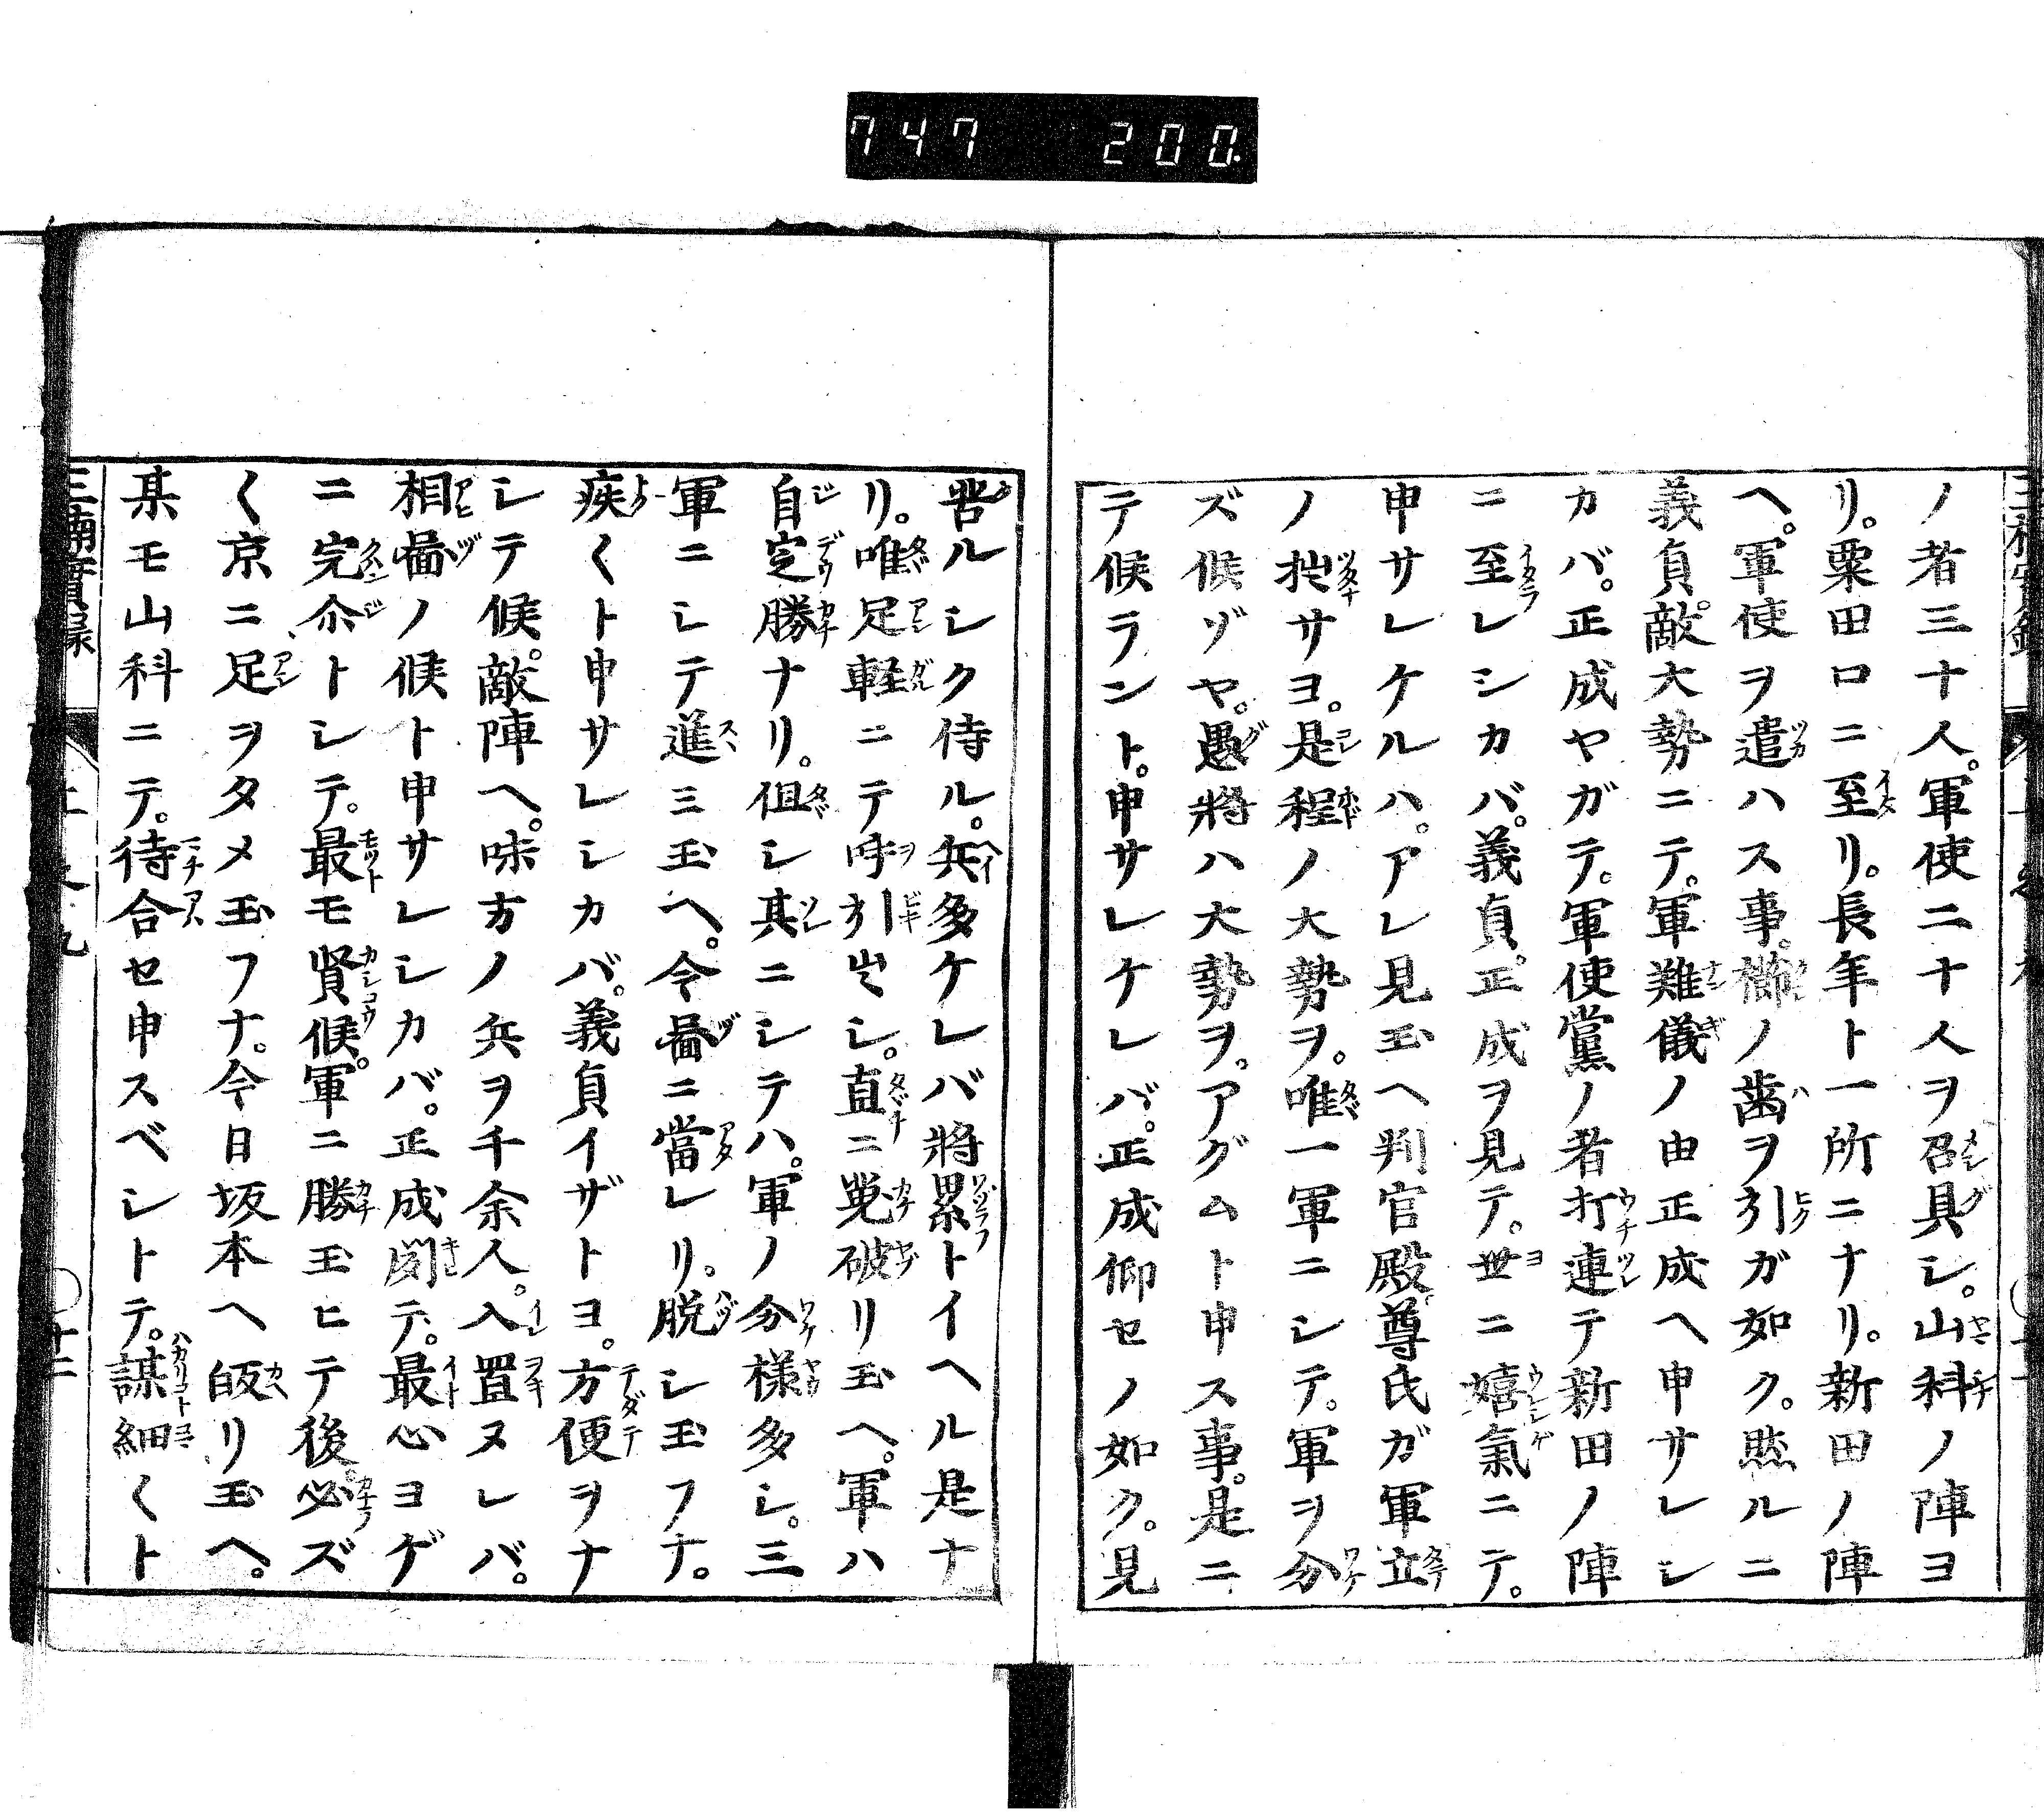 747 200.
ノ者三十人。軍使二十人ヲ召具シ。山科ノ陣ヨ
リ。粟田口ニ至リ。長年ト一所ニナリ。新田ノ陣
ヘ。軍使ヲ遣ハス事。櫛ノ歯ヲ引ガ如ク。然ルニ
義貞。敵大勢ニテ。軍難儀ノ由正成ヘ申サレシ
カバ。正成ヤガテ。軍使黨ノ者打連テ新田ノ陣
ニ至レシカバ。義貞。正成ヲ見テ。世ニ嬉氣ニテ。
申サレケルハ。アレ見玉ヘ判官殿。尊氏ガ軍立
ノ拙サヨ。是程ノ大勢ヲ。唯一軍ニシテ。軍ヲ分
ズ候ゾヤ。愚將ハ大勢ヲ。アグムト申ス事。是ニ
テ候ラント。申サレケレバ。正成仰セノ如ク。見
苦ルシク侍ル。兵多ケレバ將累トイヘル是ナ
リ。唯足軽ニテ呼引出シ。直ニ蒐破リ玉ヘ。軍ハ
自定勝ナリ。但シ其ニシテハ。軍ノ分様多シ。三
軍ニシテ進ミ玉ヘ。今啚ニ當レリ。脱シ玉フナ。
疾くト申サレシカバ。義貞イザトヨ。方便ヲナ
シテ候。敵陣ヘ。味方ノ兵ヲ千余人。入置ヌレバ。
相啚ノ候ト申サレシカバ。正成聞テ。最心ヨゲ
ニ完尒トシテ。最モ賢候。軍ニ勝玉ヒテ後。必ズ
く京ニ足ヲタメ玉フナ。今日坂本ヘ皈リ玉ヘ。
某モ山科ニテ。待合セ申スベシトテ。謀細くト
三楠實録
十二